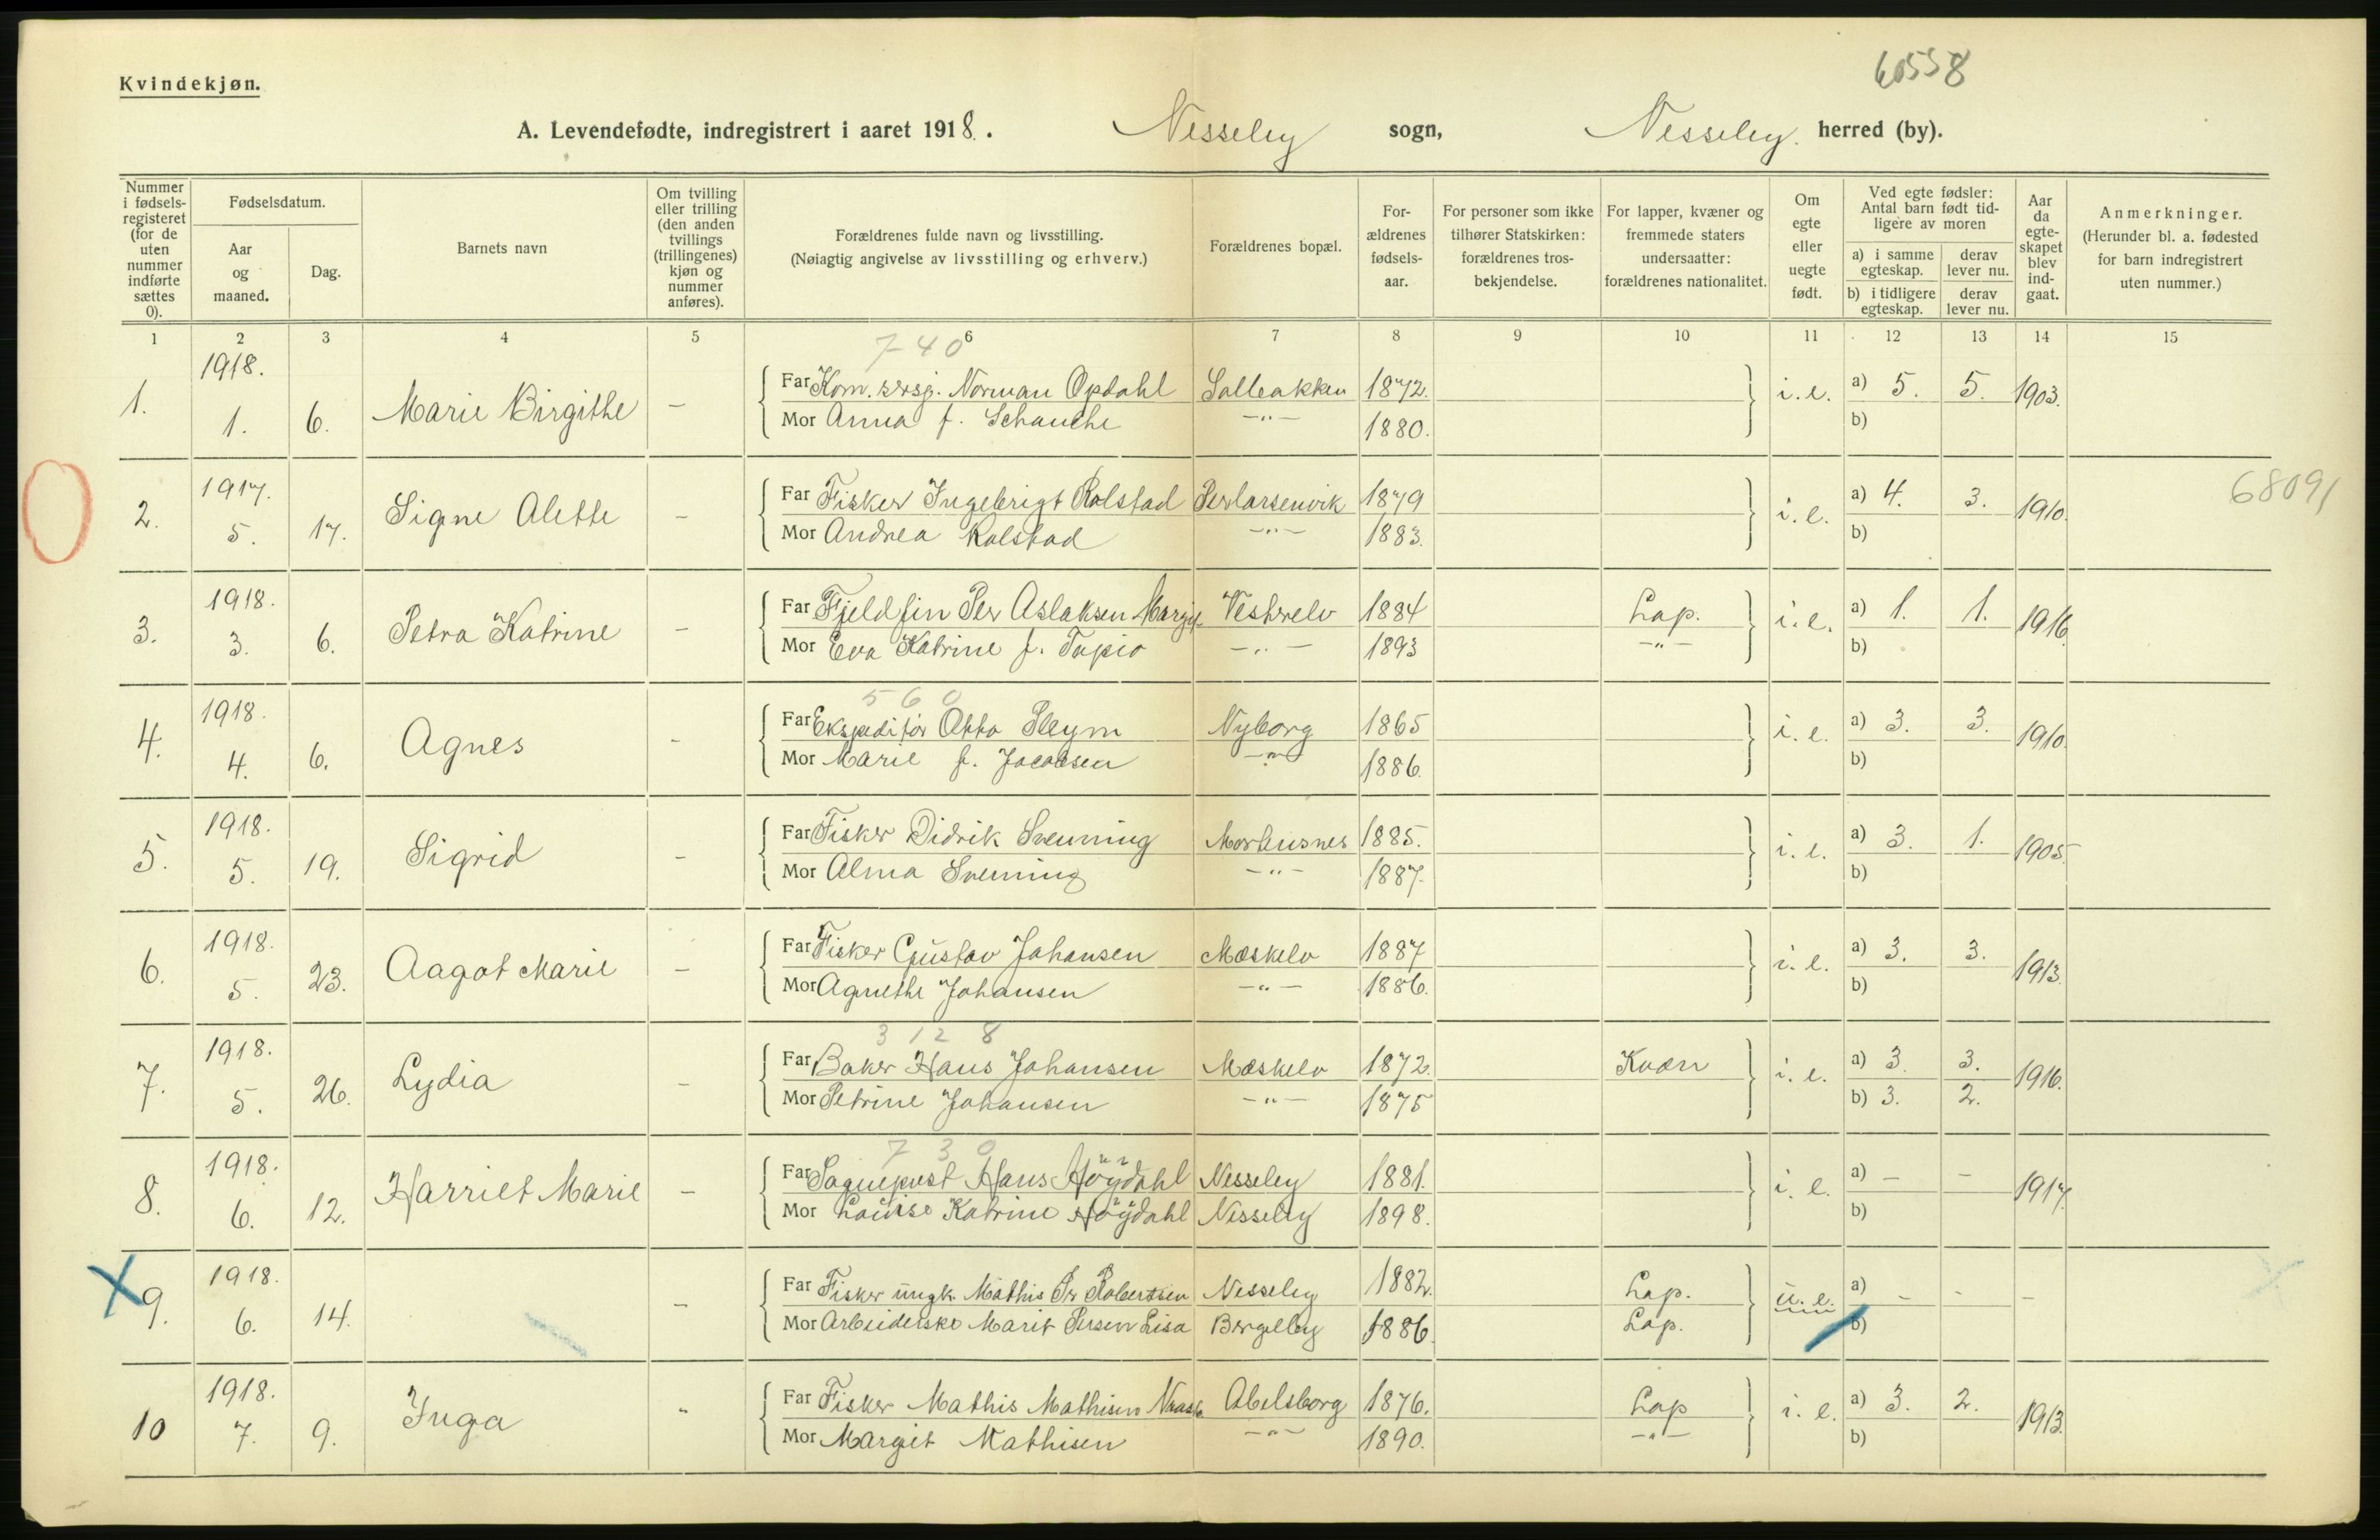 Kvindekjøn.
60558
A. Levendefødte, indregistrert i aaret 1918. Nesseby sogn, Nesseby. herred (by).
Nummer i fødsels-registeret (for de uten nummer indførte sættes 0).
Fødselsdatum.
Aar og maaned.
Dag.
Barnets navn
Om tvilling eller trilling (den anden tvillings (trillingenes) kjøn og nummer anføres).
Forældrenes fulde navn og livsstilling.
(Nøiagtig angivelse av livsstilling og erhverv.)
Forældrenes bopæl.
For-ældrenes fødsels-aar.
For personer som ikke tilhører Statskirken: forældrenes tros-bekjendelse.
For lapper, kvæner og fremmede staters undersaatter: forældrenes nationalitet.
Om egte eller uegte født.
Ved egte fødsler: Antal barn født tid-ligere av moren
a) i samme egteskap. derav lever nu.
b) i tidligere egteskap. derav lever nu.
Aar da egte-skapet blev ind-gaat.
Anmerkninger.
(Herunder bl. a. fødested for barn indregistrert uten nummer.)
1 2 3 4 5 6 7 8 9 10 11 12 13 14 15
7-40
1. 1918. 1. 6. Marie Birgithe — Far Kom. sersj. Norman Opdahl Salleakken 1872. i. e. a) 5. 5. 1903.
Mor Anna f. Schanche —"— 1880. b)
2. 1917. 5. 17. Signe Alette — Far Fisker Ingebrigt Rolstad Perlarsenvik 1879 i. e. a) 4. 3. 1910. 68091
Mor Andrea Rolstad —"— 1883. b)
3. 1918. 3. 6. Petra Katrine — Far Fjeldfin Per Aslaksen Vestrelv 1884 Lap. i. e. a) 1. 1. 1916.
Mor Eva Katrine f. Tapio —"— 1893 —"— b)
560
4. 1918. 4. 6. Agnes - Far Ekspeditør Otto Pleym Nyborg 1865 i. e. a) 3. 3. 1910.
Mor Marie f. Jacobsen —"— 1886. b)
5. 1918. 5. 19. Sigrid - Far Fisker Didrik Svenning Mortensnes 1885. i. e. a) 3. 1. 1905.
Mor Alma Svenning —"— 1887. b)
6. 1918. 5. 23. Aagot Marie — Far Fisker Gustav Johansen Mæskelv 1887 i. e. a) 3. 3. 1913.
Mor Agnethe Johansen —"— 1886. b)
3128
7. 1918. 5. 26. Lydia - Far Baker Hans Johansen Mæskelv 1872. Kvæn i. e. a) 3. 3. 1916.
Mor Petrine Johansen —"— 1875 b) 3. 2.
730
8. 1918. 6. 12. Harriet Marie — Far Hans Höydahl Nesseby 1881. i. e. a) - - 1917.
Mor Louise Katrine Höydahl Nesseby 1898. b)
X 9. 1918. 6. 14. - Far Fisker ungk. Mathis Pr Robertsen Nesseby 1882. Lap. u. e. a) - - -
Mor Arbeiderske Marit Persen Lisa Bergeby 1886. Lap. b)
10 1918. 7. 9. Inga " Far Fisker Mathis Mathisen Abelsborg 1876. Lap i. e. a) 3. 2. 1913.
Mor Margit Mathisen —"— 1890. —"— b)